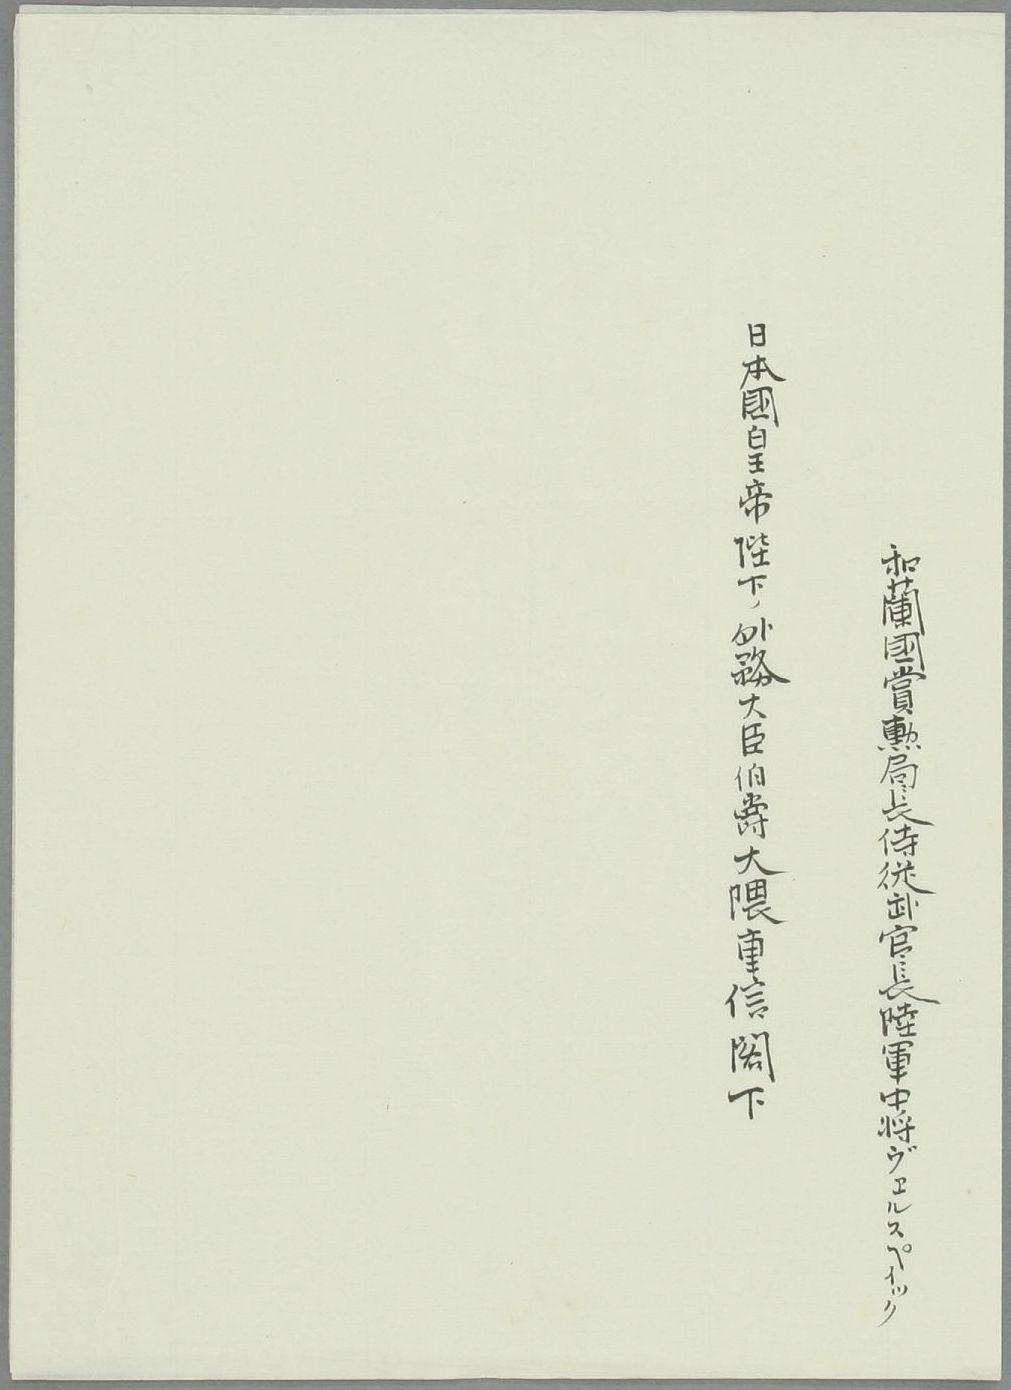 和蘭國賞勲局長侍従武官長陸軍中将ヴェルスペイック
日本國皇帝陛下ノ外務大臣伯爵大隈重信閣下